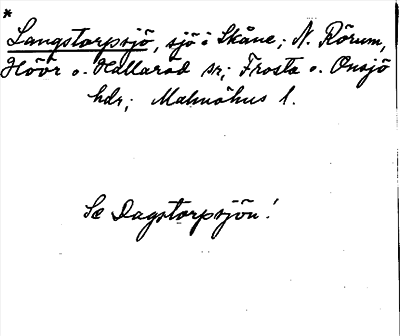 *
Langstorpsjö, sjö i Skåne; N. Rörum,
Höör o. Hallaröd sr; Frosta o. Onsjö
hdr; Malmöhus l.
Se Dagstorpsjön!